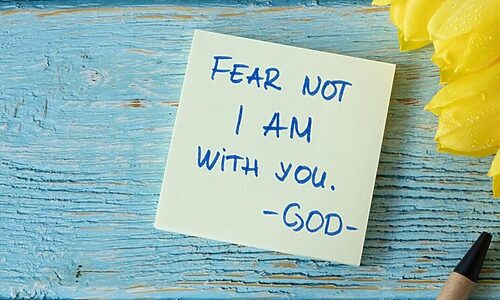 FEAR NOT
I AM
WITH YOU.
-GOD-